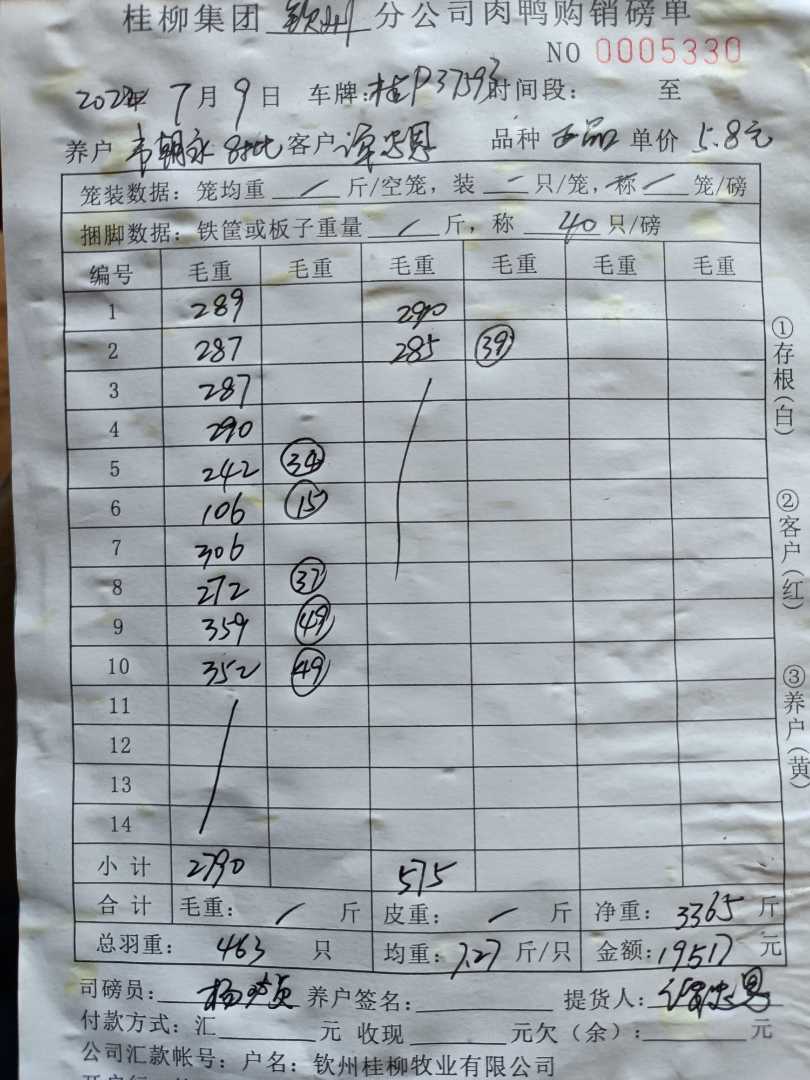 桂柳集团 钦州 分公司肉鸭购销磅单
NO 0005330
7月9日 车牌:桂P37593 时间段: 至
养户 韦朝永 客户 品种 正品 单价 5.8元
笼装数据: 笼均重 / 斤/空笼, 装 / 只/笼, 称 / 笼/磅
捆脚数据: 铁筐或板子重量 / 斤, 称 40 只/磅
编号 毛重 毛重 毛重 毛重 毛重 毛重
1 289 290
2 287 285 39
3 287
4 290
5 242 34
6 106 15
7 306
8 272 37
9 359 49
10 352 49
11
12
13
14
小计 2790 575
合计 毛重: / 斤 皮重: / 斤 净重: 3365 斤
总羽重: 463 只 均重: 7.27 斤/只 金额: 19517 元
司磅员: 养户签名: 提货人:
付款方式: 汇 元 收现 元欠(余): 元
公司汇款帐号: 户名: 钦州桂柳牧业有限公司
①存根(白)
②客户(红)
③养户(黄)